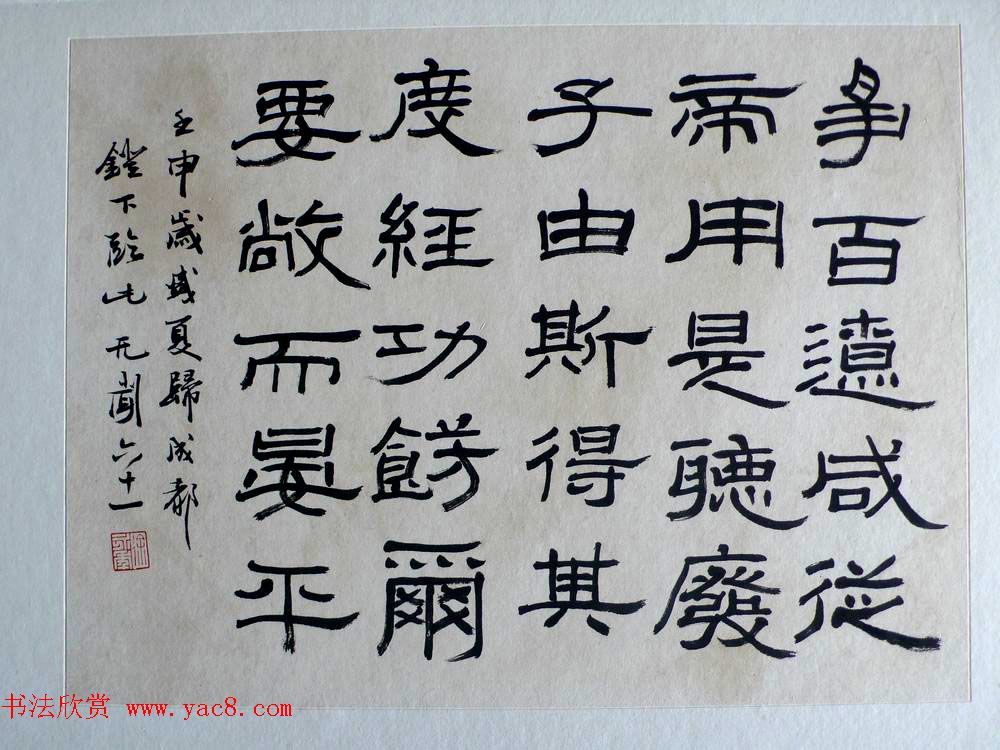 爭百遼咸從
帝用是聽廢
子由斯得其
度經功餝爾
要敞而晏平
壬申歲盛夏歸成都
鐙下臨此无聞六十一
书法欣赏 www.yac8.com